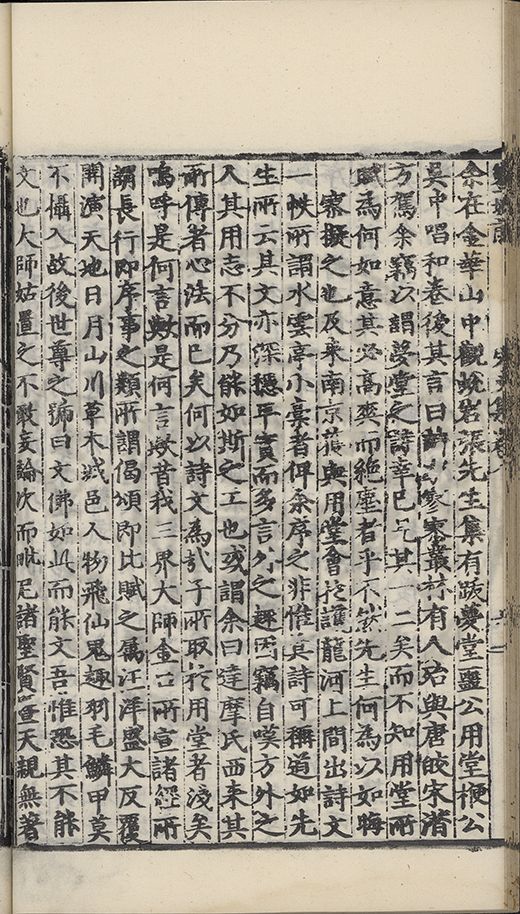 余在金華山中觀蛻岩張先生集有跋夢堂噩公用堂楩公
吳中唱和卷後其言曰寥寥叢林有人殆與唐皎宋潛
方駕余竊以謂夢堂之詩幸已見其一二矣而不知用堂所
賦為何如意其必高爽而絕塵者乎不然先生何為以如晦
寥擬之也及來南京獲與用堂會於護龍河上間出詩文
一帙所謂水雲亭小稾者俾余序之非惟其詩可稱道如先
生所云其文亦深穩平實而多言外之趣因竊自嘆方外之
人其用志不分乃能如斯之工也或謂余曰達摩氏西來其
所傳者心法而已矣何以詩文為哉子所取於用堂者淺矣
嗚呼是何言歟是何言歟昔我三界大師金口所宣諸經所
謂長行即序事之類所謂偈頌即比賦之屬汪洋盛大反覆
開演天地日月山川草木城邑人物飛仙鬼趣羽毛鱗甲莫
不攝入故後世尊之號曰文佛如此而能文吾惟恐其不能
文也大師姑置之不敢妄論次而毗尼諸聖賢暨天親無著